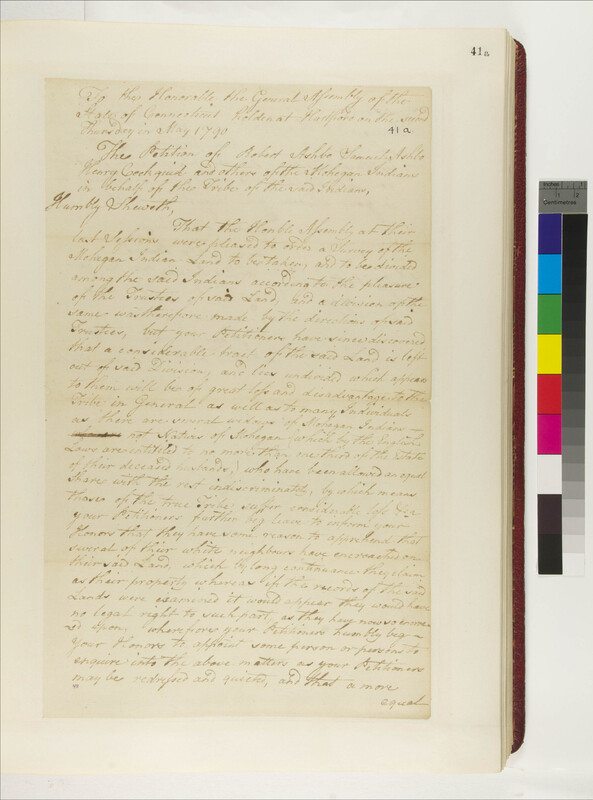 41a
To the Honorable the General Assembly of the
State of Connecticut holden at Hartford on the second
Thursday in May 1790
41a
The Petition of Robert Ashbo Samuel Ashbo
Henry Cochquid and others of the Mohegan Indians
in behalf of their Tribe of the said Indians,
Humbly Sheweth,
That the Honble Assembly at their
last Sessions were pleased to order a Survey of the
Mohegan Indian Land to be taken, and to be divided
among the said Indians according to the pleasure
of the Trustees of said Land, and a division of the
same was therefore made by the directions of said
Trustees, but your Petitioners have since discovered
that a considerable tract of the said Land is left
out of said Division, and lies undivided which appears
to them will be of great loss and disadvantage to the
Tribe in General as well as to many Individuals
as there are several widows of Mohegan Indians —
not Natives of Mohegan (which by the English
Laws are entitled to no more than one third of the Estate
of their deceased husbands) who have been allowed an equal
Share with the rest indiscriminately, by which means
those of the true Tribe suffer considerable loss &c
your Petitioners further beg leave to inform your
Honors that they have some reason to apprehend that
several of their white neighbours have encroached on
their said Land, which by long continuance they claim
as their property whereas if the records of the said
Lands were examined it would appear they would have
no legal right to such part, as they have now so encroach
=ed upon, wherefore your Petitioners humbly beg —
your Honors to appoint some person or persons to
enquire into the above matters as your Petitioners
may be redressed and quieted, and that a more
equal
Inches
1
2
Centimetres